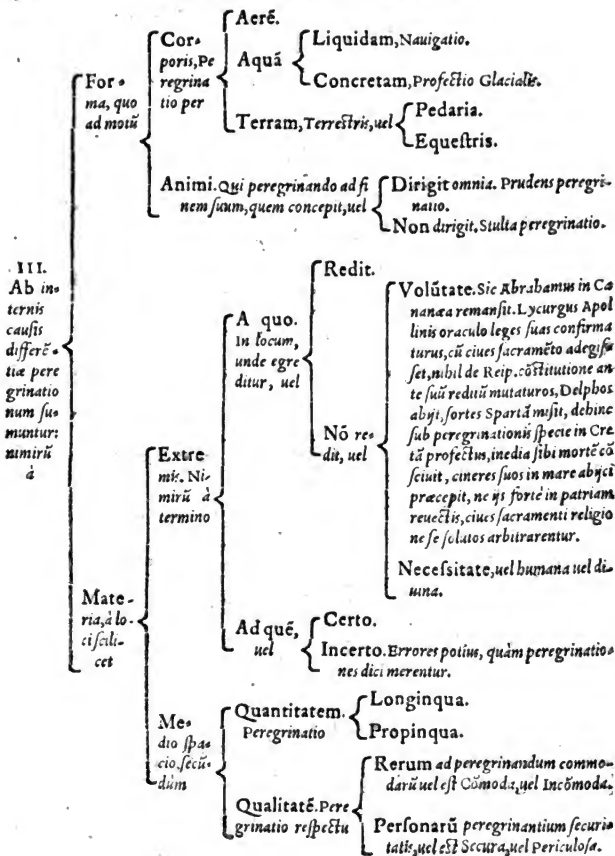 III.
Ab in-
ternis
causis
differẽ-
tiæ pere
grinatio
num su-
muntur:
nimirũ
à
For-
ma, quo
ad motũ
Cor-
poris, Pe
regrina
tio per
Aerẽ.
Aquã
Liquidam, Nauigatio.
Concretam, Profectio Glacialis.
Terram, Terrestris, uel
Pedaria.
Equestris.
Animi. Qui peregrinando ad fi
nem suum, quem concepit, uel
Dirigit omnia. Prudens peregri-
natio.
Non dirigit. Stulta peregrinatio.
Mate-
ria, à lo-
ci scili-
cet
Extre
mis. Ni-
mirũ à
termino
A quo.
In locum,
unde egre
ditur, uel
Redit.
Nõ re-
dit, uel
Volũtate. Sic Abrahamus in Ca
nanæa remansit. Lycurgus Apol
linis oraculo leges suas confirma
turus, cũ ciues sacramẽto adegis-
set, nihil de Reip. cõstitutione an-
te suũ reditũ mutaturos, Delphos
abijt, sortes Spartã misit, dehinc
sub peregrinationis specie in Cre
tã profectus, inedia sibi mortẽ cõ
sciuit, cineres suos in mare abijci
præcepit, ne ijs fortè in patriam
reuectis, ciues sacramenti religio
ne se solutos arbitrarentur.
Necessitate, uel humana uel di-
uina.
Ad quẽ,
uel
Certo.
Incerto. Errores potius, quàm peregrinatio-
nes dici merentur.
Me-
dio spa-
cio, secũ-
dùm
Quantitatem.
Peregrinatio
Longinqua.
Propinqua.
Qualitatẽ. Pere
grinatio respectu
Rerum ad peregrinandum commo-
darũ uel est Cõmoda, uel Incõmoda.
Personarũ peregrinantium securi-
tatis, uel est Secura, uel Periculosa.